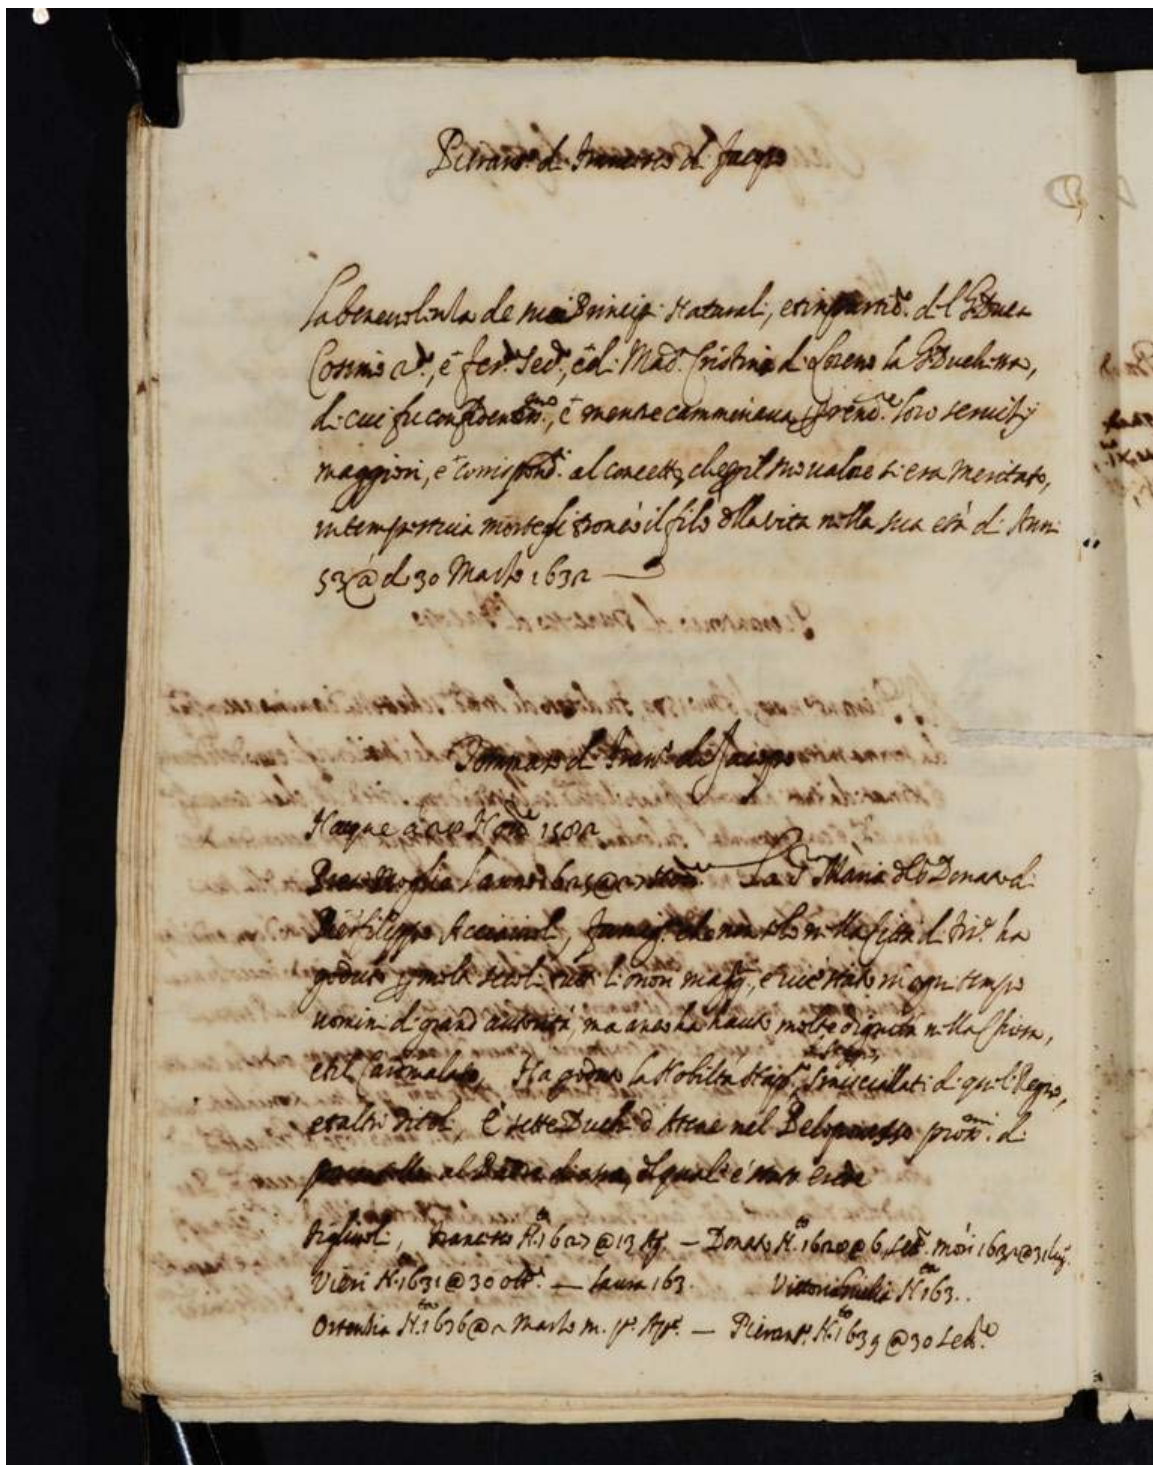 Pierant.º di Francesco di Jacopo
La benevolenza de suoi Principi Naturali, et in partic.re del G. Duca
Cosimo 2.º, e Fer.º Sec.º, e di Mad.ª Cristina di Loreno la G. Duchessa,
di cui fu confidentiss.mo, e mentre camminava loro servitij
maggiori, e corrispond.ti al concetto, che per il suo valore si era meritato,
intempestiva morte gli troncò il filo della vita nella sua età di Anni
53 @ dì 30 Marzo 1632
Tommaso di Fran.co di Jacopo
Nacque a 28 Nov.re 1582
Prese Moglie l'anno 1625 @ 27 La S.ra Maria del S. Donato di
Pierfilippo Acciaiuoli, famig.ª che non solo nella Città di Fir.e ha
goduto p molti secoli tutti li onori magg.ri, e vi è stato in ogni tempo
uomini di grand' autorità, ma anco ha hauto molte dignità nella Chiesa,
et il Cardinalato, Ha goduto la Nobiltà Nap.na, di quel Regno,
et altri titoli, e sette Duchi d'Atene nel Peloponesso
al Padre è stato erede
Figliuoli, Francesco N.to 1627 @ 13 Ag.º — Donato N.to 1628 @ 6 Sett.e Morì 1632 @ 31 Lug.
Vieri N. 1631 @ 30 Ott.e — Laura 163. Vittoria N.ta 163..
Ortensia N.ta 1636 @ 2 Marzo m. — Pierant.º N.to 1639 @ 30 Sett.e